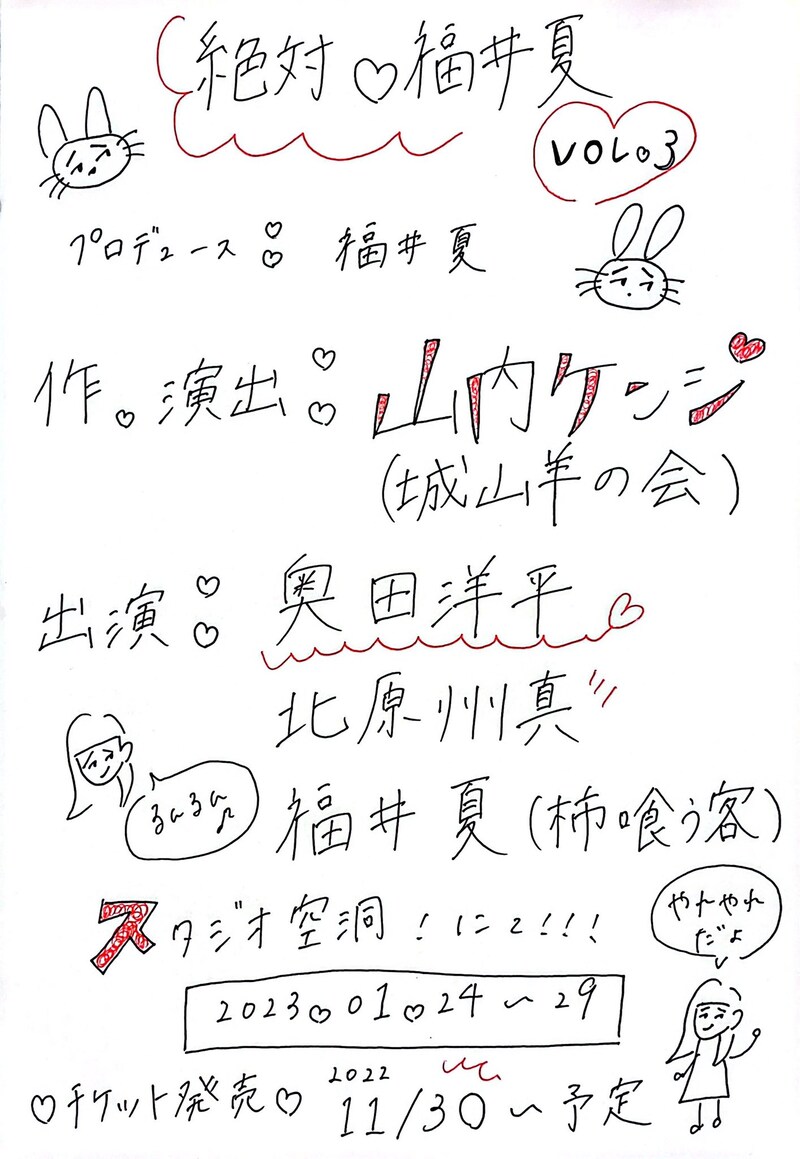 絶対♡福井夏
VOL.3
プロデュース：福井夏
作。演出：山内ケンジ
(城山羊の会)
出演：奥田洋平
北原州真
福井夏(柿喰う客)
るんるん♪
スタジオ空洞！にて!!!
やれやれ
だよ
2023.01.24～29
♡チケット発売♡ 2022 11/30～予定